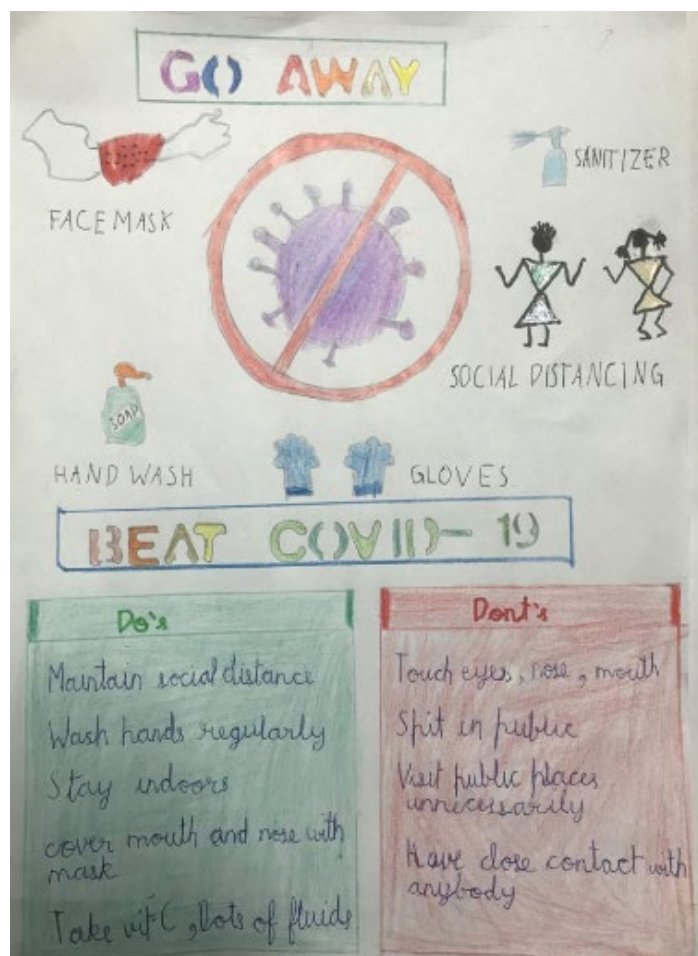 GO AWAY
SANITIZER
FACEMASK
SOCIAL DISTANCING
SOAP
HAND WASH
GLOVES
BEAT COVID-19
Do's
Maintain social distance
Wash hands regularly
Stay indoors
cover mouth and nose with
mask
Take vit C, lots of fluids
Dont's
Touch eyes, nose, mouth
Spit in public
Visit public places
unnecessarily
Have close contact with
anybody